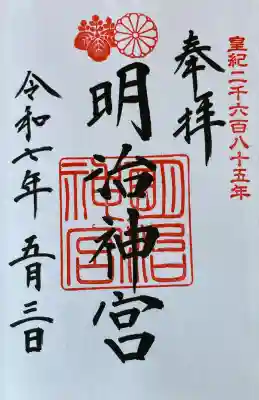 皇紀二千六百八十五年
奉拝
明治神宮
明治神宮
令和七年 五月三日